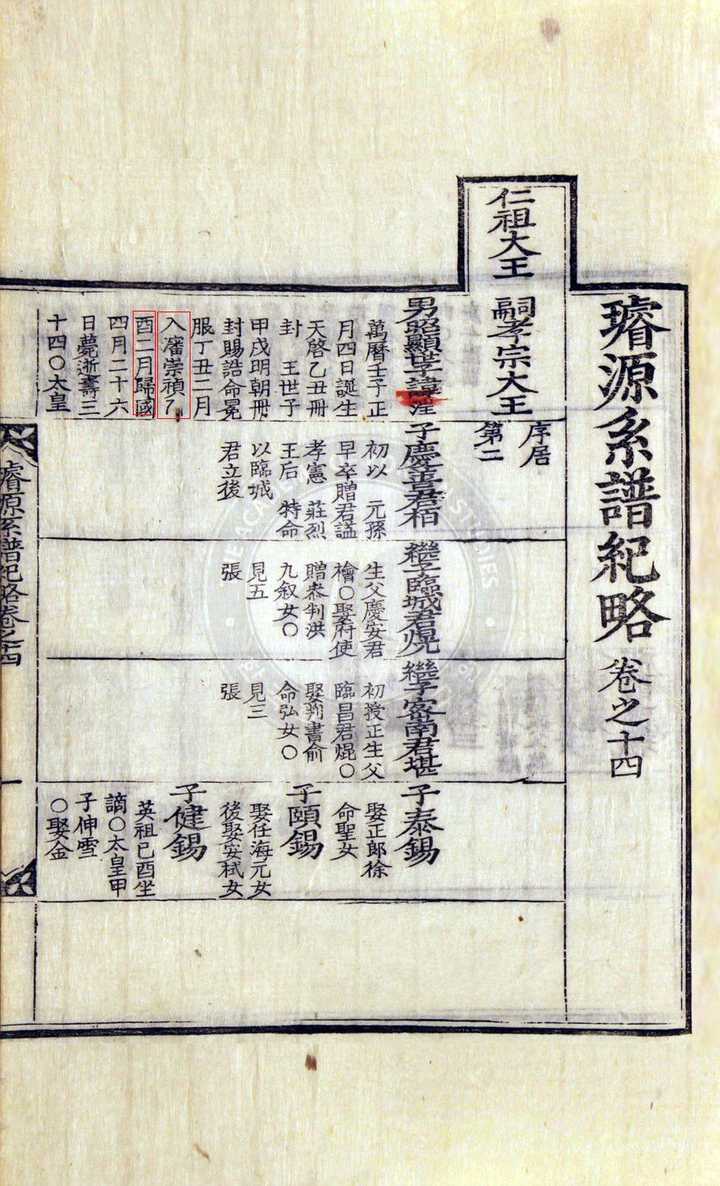 璿源系譜紀略 卷之十四
仁祖大王 嗣孝宗大王
序居
第二
男昭顯世子諱𣴴
萬曆壬子正
月四日誕生
天啓乙丑冊
封 王世子
甲戌明朝冊
封賜誥命冕
服丁丑二月
入瀋崇禎乙
酉二月歸國
四月二十六
日薨逝壽三
十四○太皇
子慶善君栢
初以 元孫
早卒贈君謚
孝憲 莊烈
王后 特命
以臨城
君立後
繼子臨城君熀
生父慶安君
檜○娶府使
贈叅判洪
九叙女○
見五
張
繼子密南君堪
初授正生父
臨昌君焜○
娶判書俞
命弘女○
見三
張
子泰錫
娶正郎徐
命聖女
子頤錫
娶任海元女
後娶安栻女
子健錫
英祖己酉坐
謫○太皇甲
子伸雪
○娶金
璿源系譜紀略卷之十四